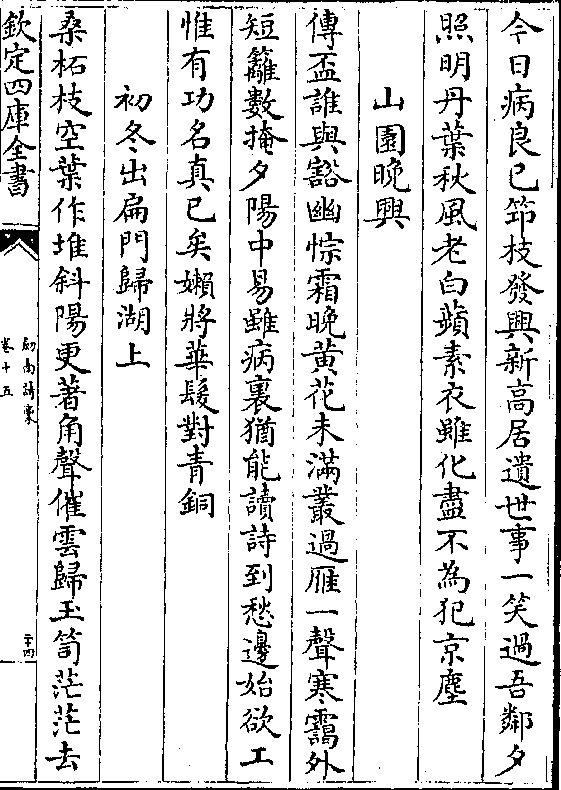 今日病良已筇枝發興新高居遺世事一笑過吾鄰夕
照明丹葉秋風老白蘋素衣雖化盡不為犯京塵
山園晚興
傳盃誰與豁幽悰霜晚黃花未滿叢過雁一聲寒靄外
短籬數掩夕陽中易雖病裏猶能讀詩到愁邊始欲工
惟有功名真已矣嬾將華髮對青銅
初冬出扁門歸湖上
桑柘枝空葉作堆斜陽更著角聲催雲歸玉笥茫茫去
欽定四庫全書
劍南詩稾
卷十五
二十四